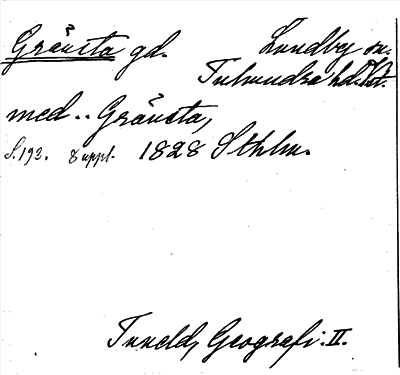 Gränsta gd. Lundby sn.
Tuhundra hd. Vst.
med .. Gränsta,
S. 193. 8 uppl. 1828 Sthlm.
Tuneld, Geografi. II.